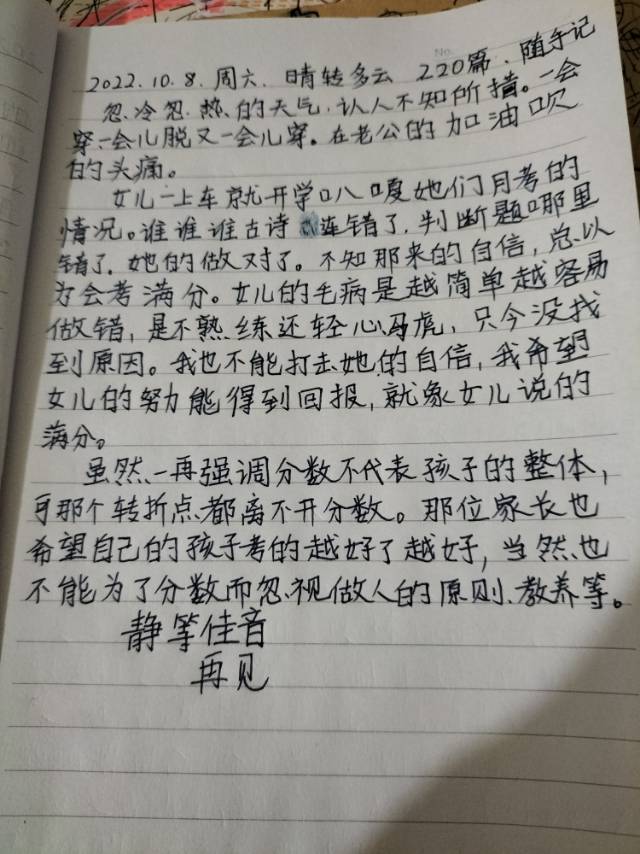 No.
2022.10.8.周六.晴转多云 220篇.随手记
忽冷忽热的天气,认人不知所措。一会
穿一会儿脱又一会儿穿。在老公的加油吹
的头痛。
女儿一上车就开学叭嗄她们月考的
情况。谁谁谁古诗连错了,判断题哪里
错了,她的做对了。不知那来的自信,总以
为会考满分。女儿的毛病是越简单越容易
做错,是不熟练还轻心马虎,只今没找
到原因。我也不能打击她的自信,我希望
女儿的努力能得到回报,就象女儿说的
满分。
虽然一再强调分数不代表孩子的整体,
可那个转折点都离不开分数。那位家长也
希望自己的孩子考的越好了越好,当然也
不能为了分数而忽视做人的原则、教养等。
静等佳音
再见